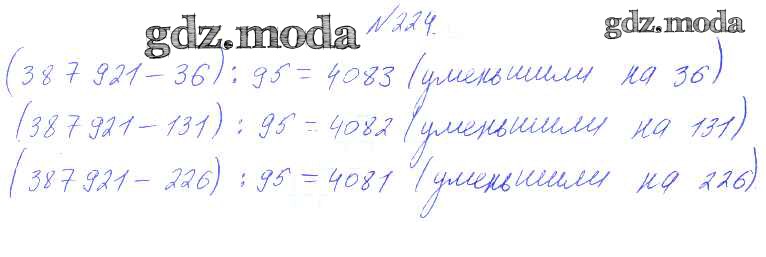 gdz.moda №224. gdz.moda
(387 921 – 36) : 95 = 4083 (уменьшили на 36)
(387 921 – 131) : 95 = 4082 (уменьшили на 131)
(387 921 – 226) : 95 = 4081 (уменьшили на 226)